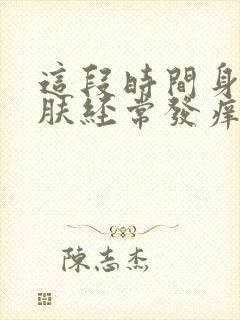 這段時間身
膚經常發癢
陳志杰